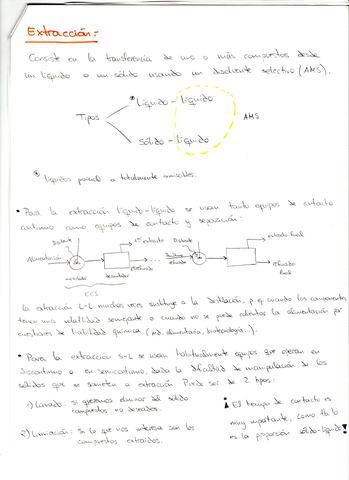 Extracción:
Consiste en la transferencia de uno o más compuestos desde
un líquido o un sólido usando un disolvente selectivo (AMS).
* Líquido - líquido
Tipos
AMS
Sólido - líquido
* líquidos parcial o totalmente inmiscibles.
• Para la extracción líquido-líquido se usan tanto equipos de contacto
continuo como equipos de contacto y separación:
Disolvente
1er extracto
Disolvente
extracto final
Alimentación
refinado
refinado
final
mezclador
decantador
La extracción L-L muchas veces sustituye a la destilación, p.ej. cuando los componentes
tienen una volatilidad semejante o cuando no se puede calentar la alimentación por
cuestiones de labilidad química (ind. alimentaria, biotecnología..).
• Para la extracción S-L se usan habitualmente equipos que operan en
discontinuo o en semicontinuo, dada la dificultad de manipulación de los
sólidos que se someten a extracción. Puede ser de 2 tipos:
1) Lavado: si queremos eliminar del sólido
compuestos no deseados.
2) Lixiviación: Si lo que nos interesa son los
compuestos extraídos.
¡ El tiempo de contacto es
muy importante, como tb lo
es la proporción sólido-líquido!